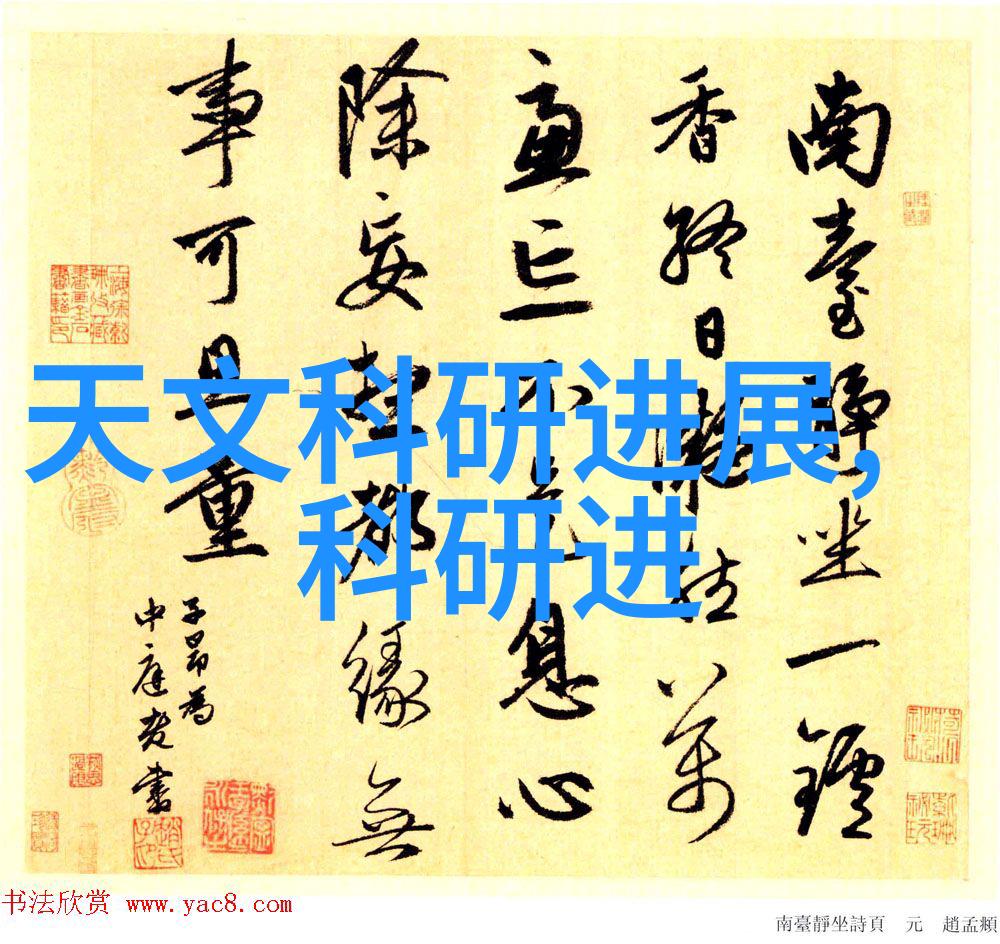 南臺靜坐一鑪
香終日凝然萬
慮亡不是息心
除妄想都緣無
事可思量
子昂為
中庭老書
天文科研进展,
科研进
书法欣赏 www.yac8.com
南臺靜坐詩頁 元 趙孟頫